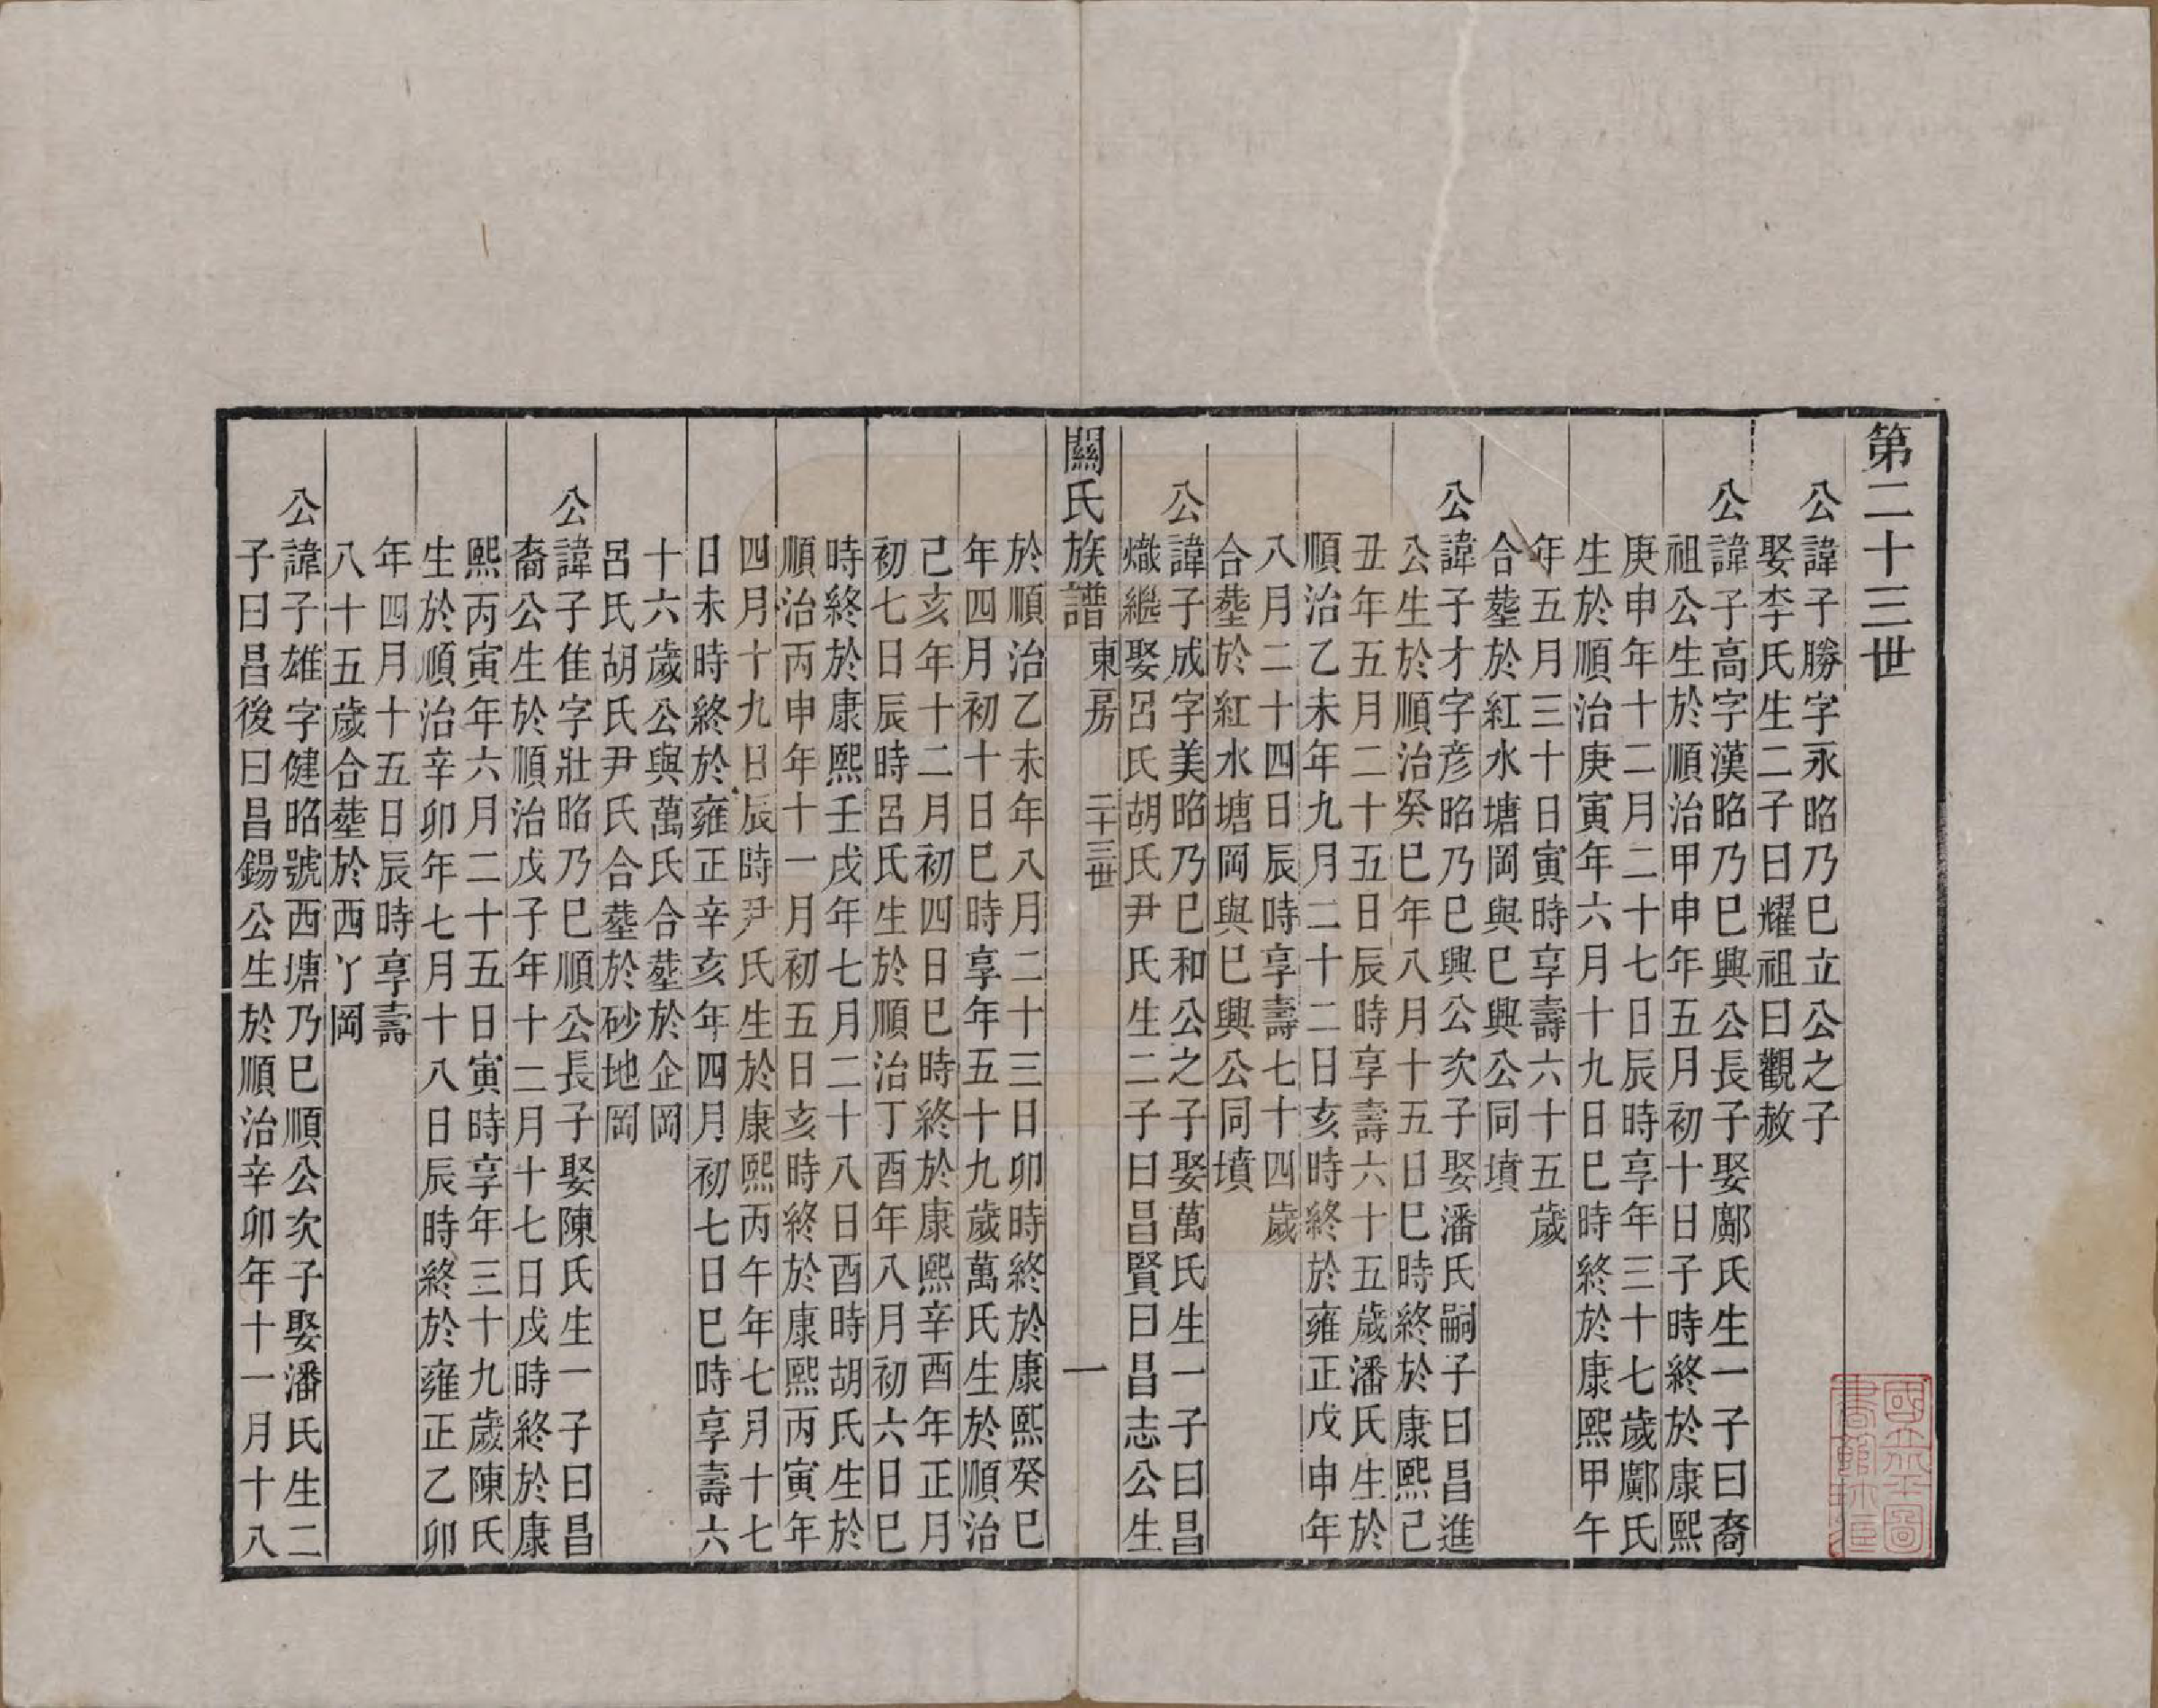 第二十三世
公諱子勝字永昭乃巳立公之子
娶李氏生二子曰耀祖曰觀赦
公諱子高字漢昭乃巳興公長子娶鄺氏生一子曰裔
祖公生於順治甲申年五月初十日子時終於康熙
庚申年十二月二十七日辰時享年三十七歲鄺氏
生於順治庚寅年六月十九日巳時終於康熙甲午
年五月三十日寅時享壽六十五歲
合塟於紅水塘岡與巳興公同墳
公諱子才字彦昭乃巳興公次子娶潘氏嗣子曰昌進
公生於順治癸巳年八月十五日巳時終於康熙己
丑年五月二十五日辰時享壽六十五歲潘氏生於
順治乙未年九月二十二日亥時終於雍正戊申年
八月二十四日辰時享壽七十四歲
合塟於紅水塘岡與巳興公同墳
公諱子成字美昭乃巳和公之子娶萬氏生一子曰昌
熾繼娶呂氏胡氏尹氏生二子曰昌賢曰昌志公生
關氏族譜 東房 二十三世 一
於順治乙未年八月二十三日卯時終於康熙癸巳
年四月初十日巳時享年五十九歲萬氏生於順治
己亥年十二月初四日巳時終於康熙辛酉年正月
初七日辰時呂氏生於順治丁酉年八月初六日巳
時終於康熙壬戌年七月二十八日酉時胡氏生於
順治丙申年十一月初五日亥時終於康熙丙寅年
四月十九日辰時尹氏生於康熙丙午年七月十七
日未時終於雍正辛亥年四月初七日巳時享壽六
十六歲公與萬氏合塟於企岡
呂氏胡氏尹氏合塟於砂地岡
公諱子隹字壯昭乃巳順公長子娶陳氏生一子曰昌
裔公生於順治戊子年十二月十七日戌時終於康
熙丙寅年六月二十五日寅時享年三十九歲陳氏
生於順治辛卯年七月十八日辰時終於雍正乙卯
年四月十五日辰時享壽
八十五歲合塟於西丫岡
公諱子雄字健昭號西塘乃巳順公次子娶潘氏生二
子曰昌後曰昌錫公生於順治辛卯年十一月十八
國立北平圖
書館珍藏